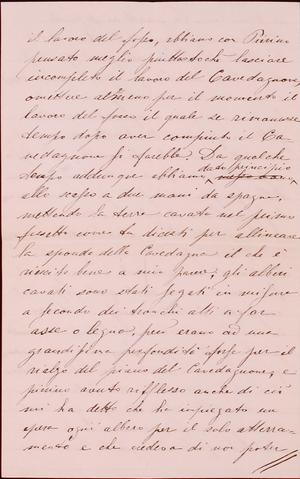 il lavoro del fosso, abbiamo con Pierino
pensato meglio piuttosto che lasciare
incompleto il lavoro del Cavedagnone,
omettere almeno per il momento il
lavoro del fosso il quale se rimanesse
tempo dopo aver compiuto il Ca-
vedagnone si farebbe. Da qualche
tempo addunque abbiamo dato principio
allo scasso a due mani da spagna,
mettendo la terra cavata nel primo
fossetto come ta dicati per allineare
la sponda della Cavedagna il che è
riescito bene a mio parere, gli alberi
cavati sono stati segati in misura
a secondo dei tronchi atti a far
asse o legna, però erano ad una
grandissima profondità forse per il
rialzo del piano del Cavedagnone, e
Pierino avuto riflesso anche di ciò
mi ha detto che ha impiegato un
opera ogni albero per il solo atterra-
mento e che credeva di non poter